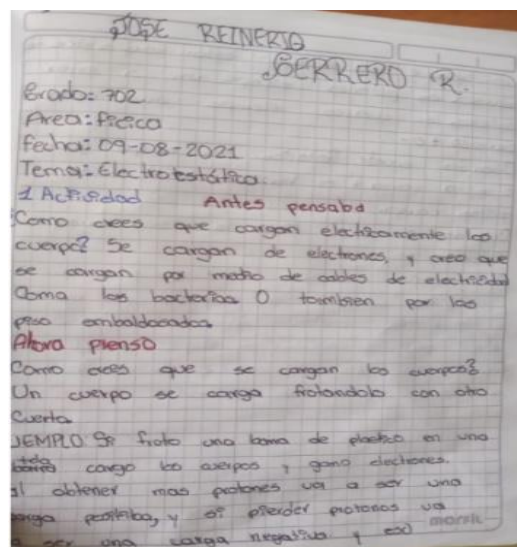 JOSE REINERIO
BERRERO R.
Grado: 702
Area: ficica
fecha: 09-08-2021
Tema: Electroestática
1 Actividad Antes pensaba
Como crees que cargan electricamente los
cuerpo? Se cargan de electrones, y creo que
se cargan por medio de cables de electricidad
Como las bacterias O tambien por los
piso embaldosados
Ahora pienso
Como crees que se cargan los cuerpos?
Un cuerpo se carga frotandolo con otro
Cuerta
JEMPLO Se froto una de plastico en una
tela cargo los cuerpos y gano electrones.
al obtener mas protones va a ser una
carga positiba, y si pierder protones va
a ser una carga negativa y eso